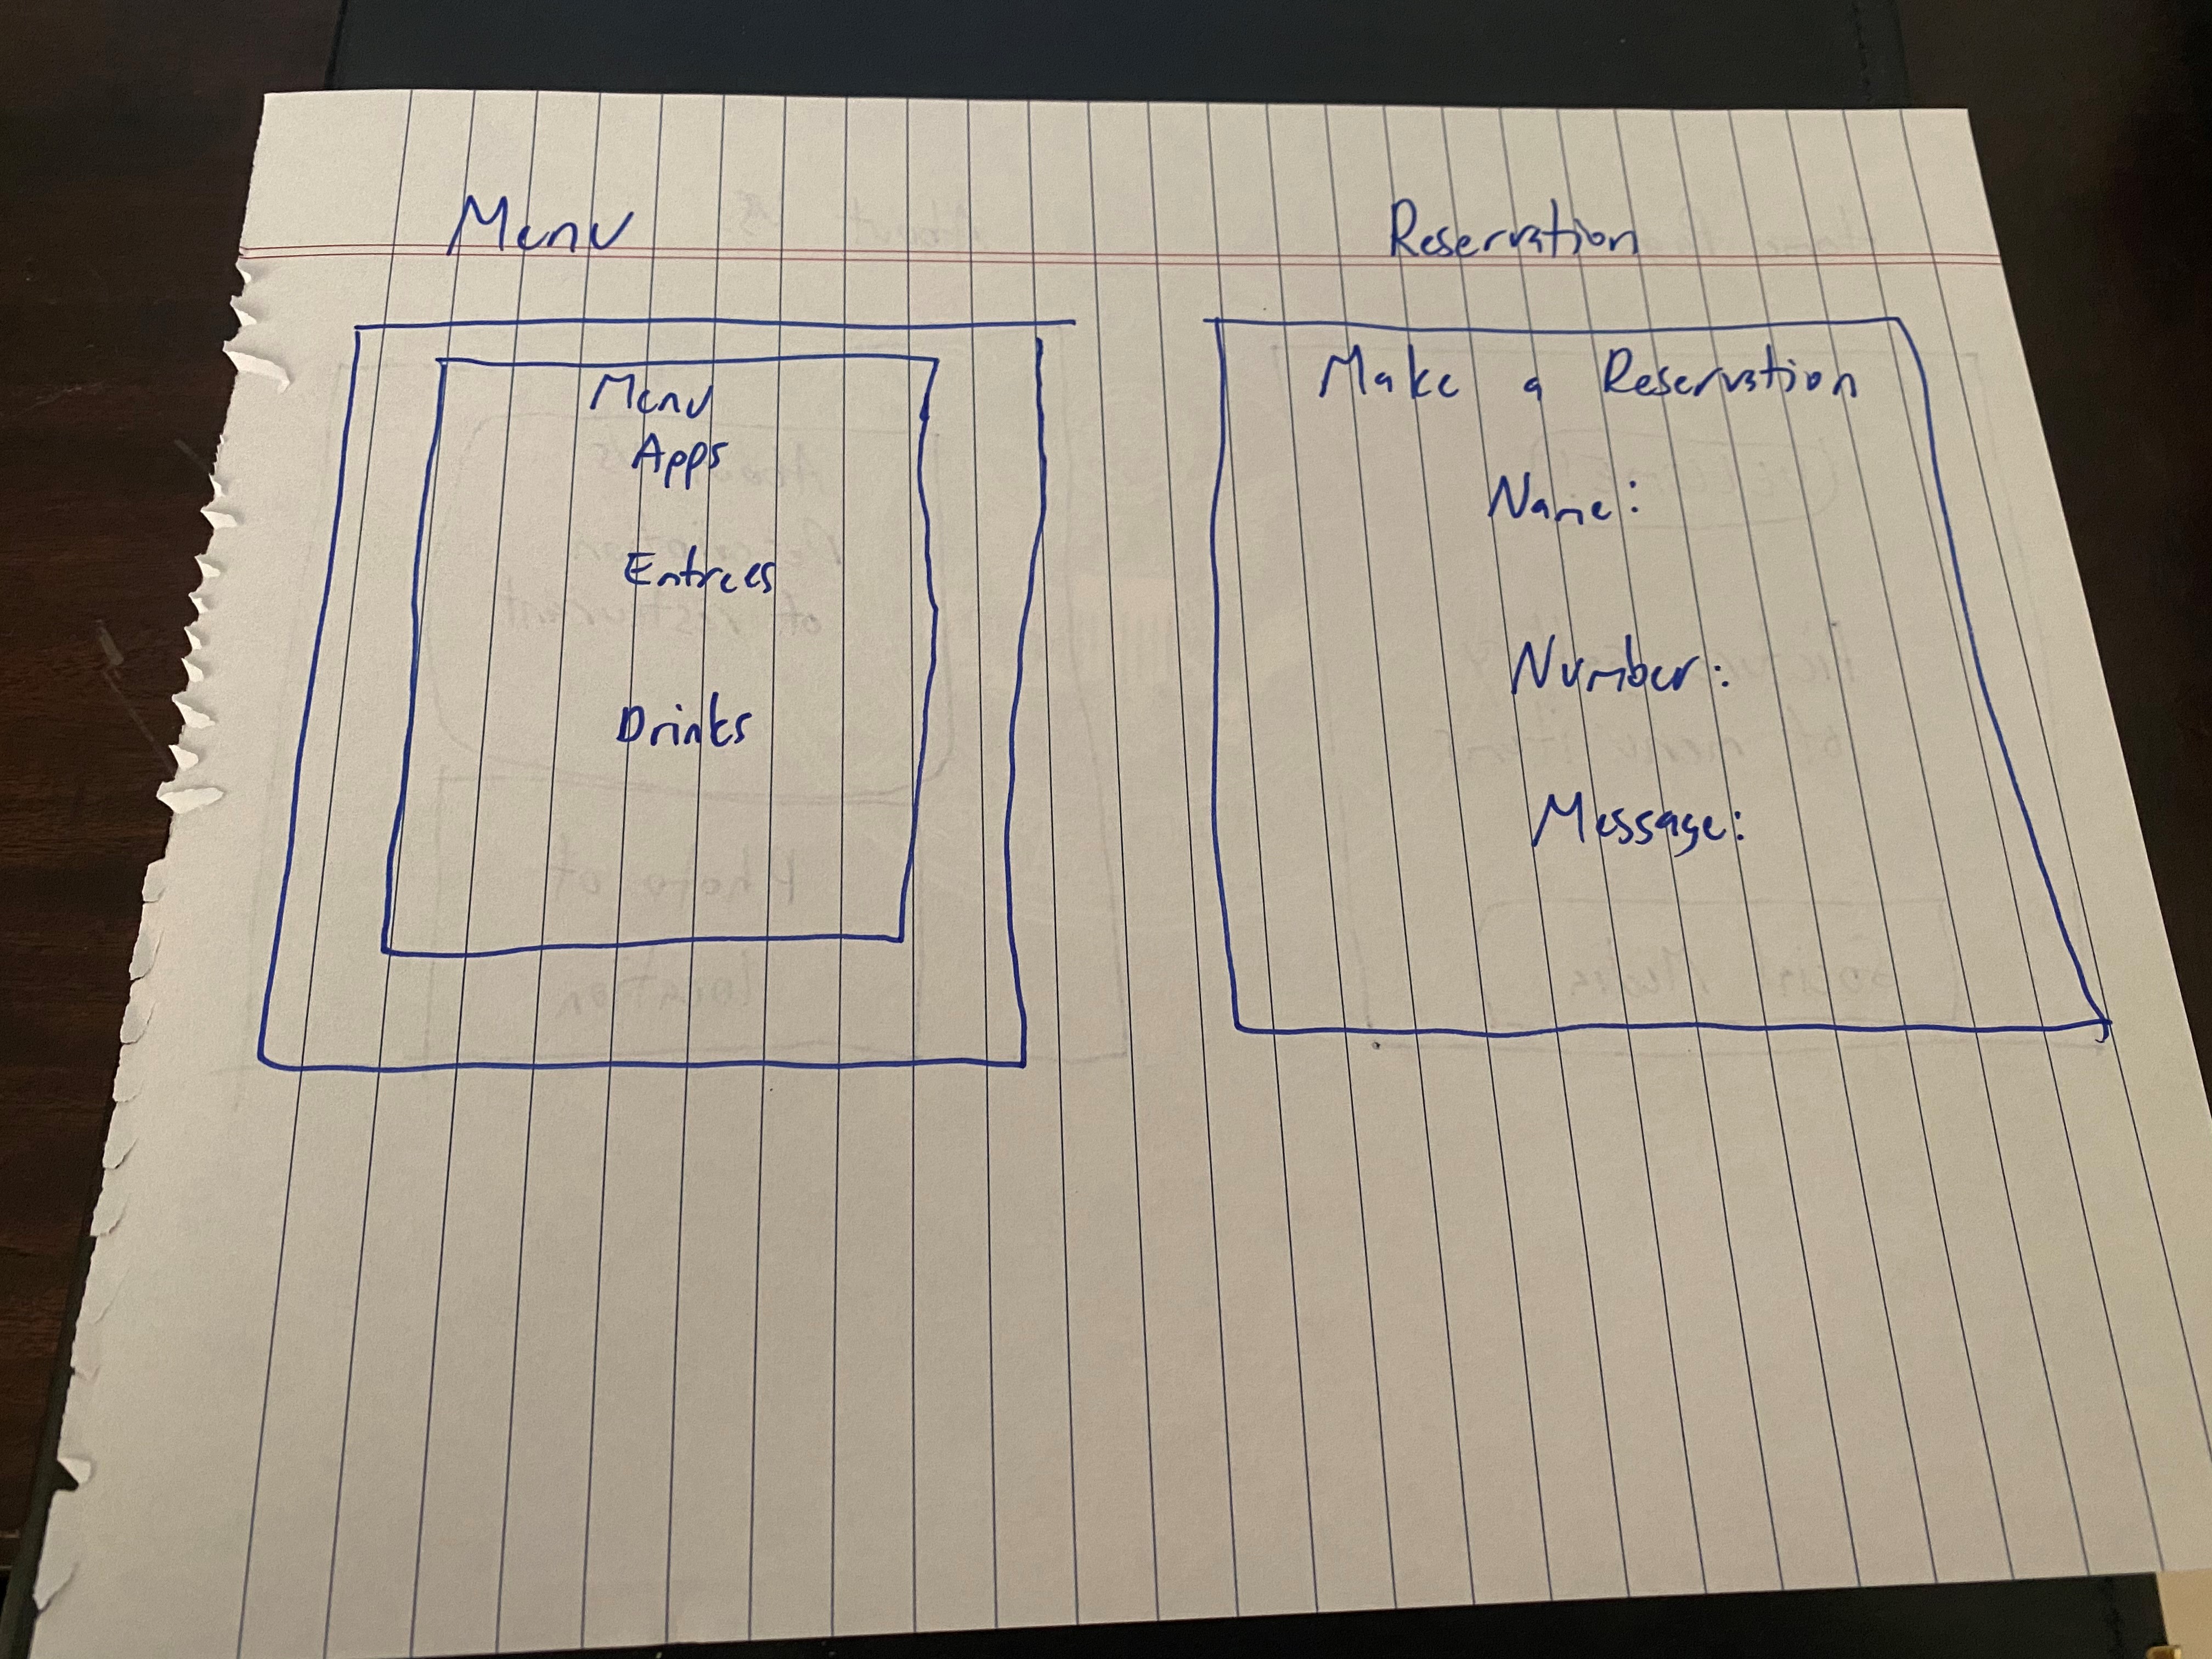 Menu
Menu
Apps
Entrees
Drinks
Reservation
Make a Reservation
Name:
Number:
Message: